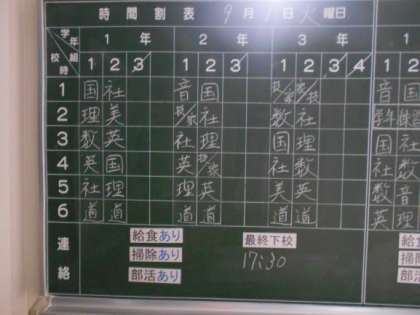 時間割表 9月 日火曜日
学年 組 校時 1年 2年 3年
1 2 3 1 2 3 1 2 3 4 1 2
1 国 社 音 国 技/家 家/技 音 国
2 理 美 技/家 社 数 社 学年練習
3 数 英 社 理 国 理 国 社
4 英 国 英 技/家 社 数 社
5 社 理 理 英 美 英 数 音
6 道 道 道 道 道 道 英 理
連絡 給食あり 最終下校 給食あ
掃除あり 17:30 掃除
部活あり 部活